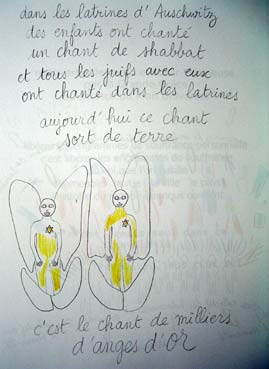 dans les latrines d'Auschwitz
des enfants ont chanté
un chant de shabbat
et tous les juifs avec eux
ont chanté dans les latrines
aujourd'hui ce chant
sort de terre
c'est le chant de milliers
d'anges d'or